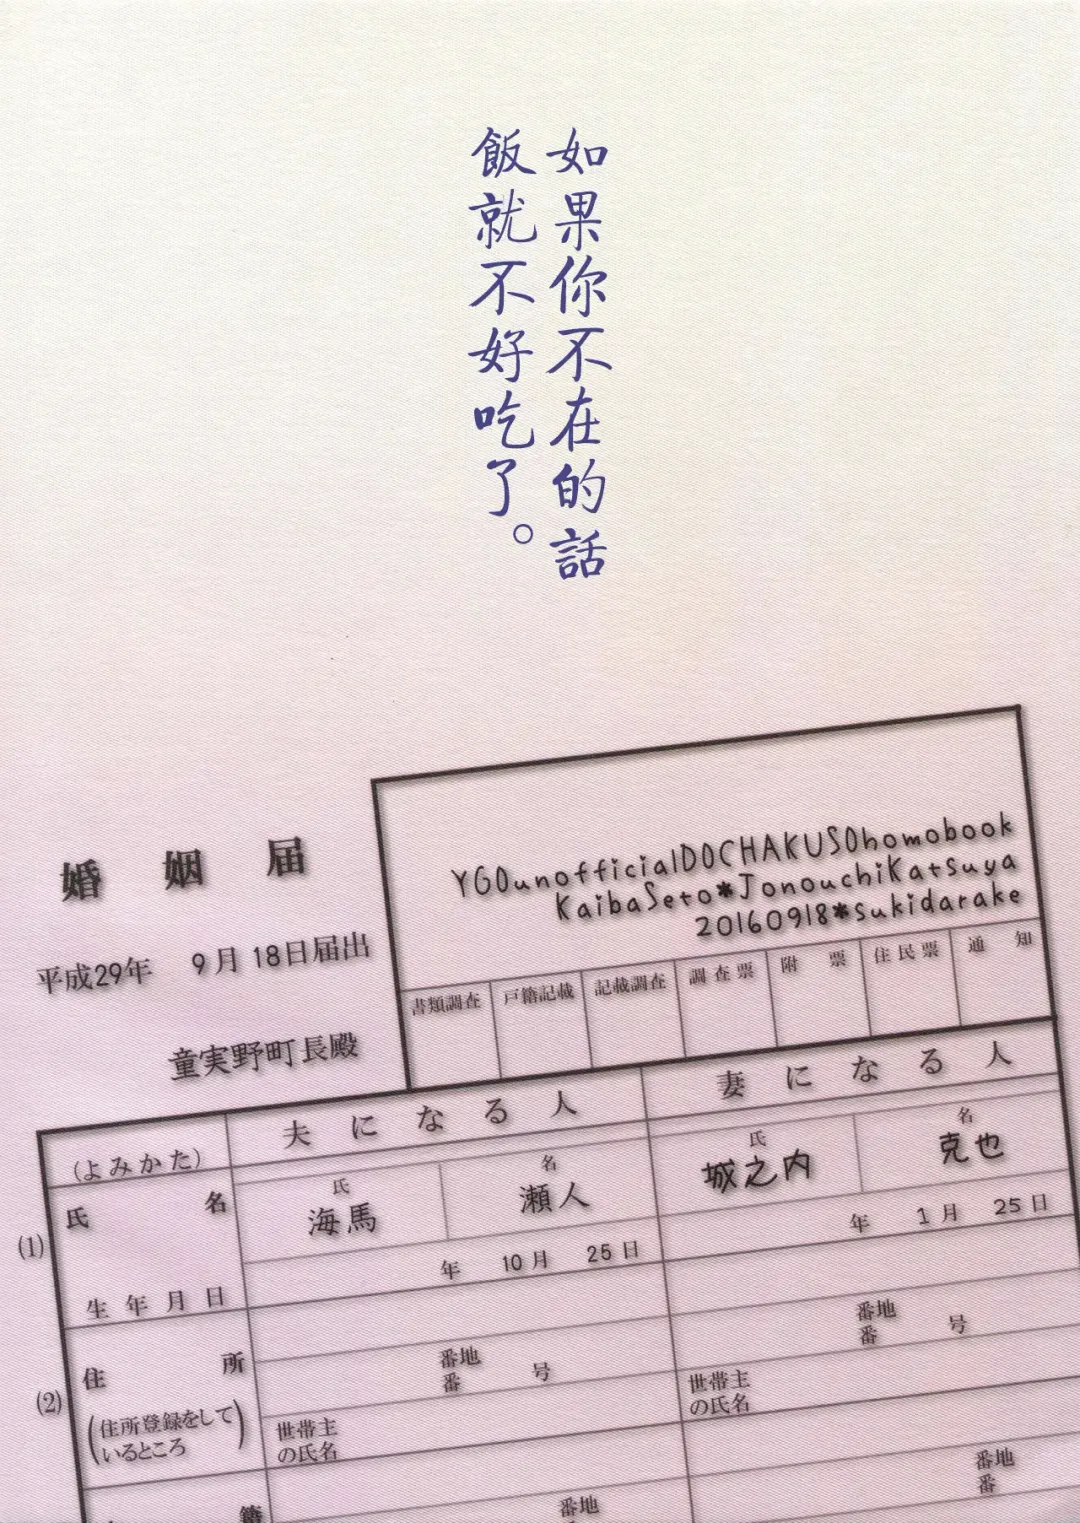 如果你不在的話
飯就不好吃了。
YGOunofficialDOCHAKUSOhomobook
KaibaSeto*JonouchiKatsuya
20160918*sukidarake
婚姻届
平成29年 9月18日届出
童実野町長殿
書類調査 戸籍記載 記載調査 調査票 附票 住民票 通知
夫になる人 妻になる人
(よみかた)
氏 名 氏 名
氏名 海馬 瀬人 城之内 克也
(1)
生年月日 年 10月 25日 年 1月 25日
住所
番地 号 番地 号
番 番
(2)
(住所登録をして
いるところ)
世帯主 世帯主
の氏名 の氏名
籍
番地 番地
番